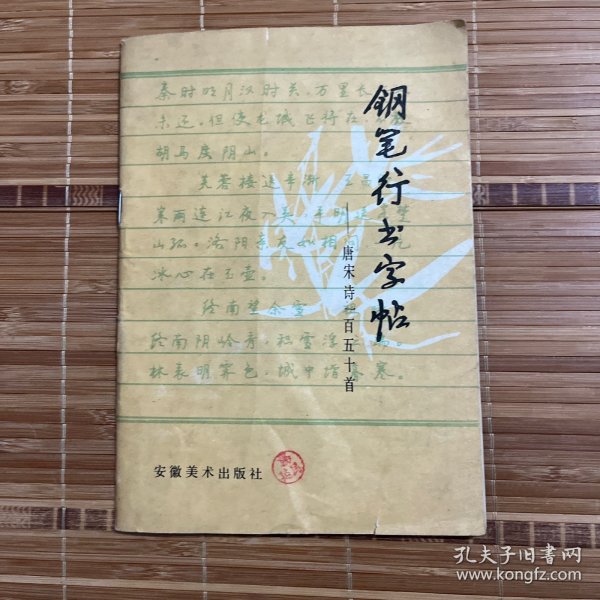 钢笔行书字帖
——唐宋诗词百五十首
秦时明月汉时关，万里长
未还。但使龙城飞将在
胡马度阴山。
芙蓉楼送辛渐
寒雨连江夜入吴，平明送
山孤。洛阳亲友如相问
冰心在玉壶。
终南望余雪
终南阴岭秀，积雪浮云端。
林表明霁色，城中增暮寒。
安徽美术出版社
孔夫子旧书网
www.kongfz.com